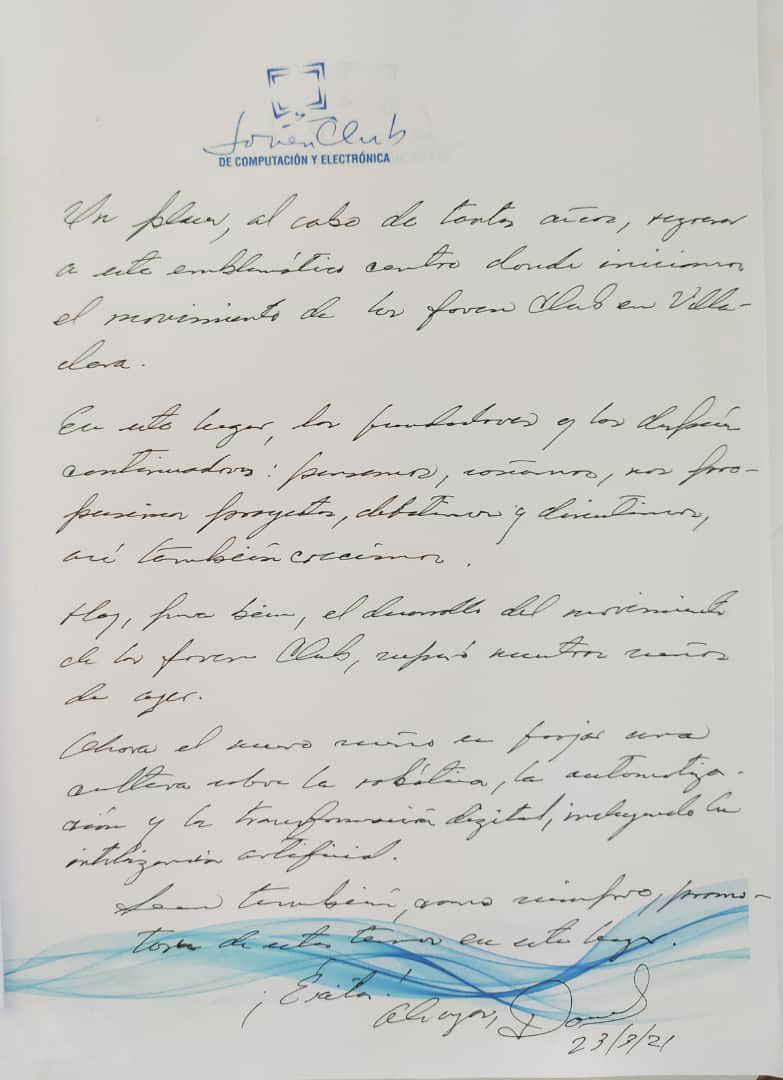 Joven Club
DE COMPUTACIÓN Y ELECTRÓNICA
Un placer, al cabo de tantos años, regresar
a este emblemático centro donde iniciamos
el movimiento de los Joven Club en Villa-
clara.
En este lugar, los fundadores y los después
continuadores: pensamos, soñamos, nos pro-
pusimos proyectos, debatimos y discutimos,
así también crecimos.
Hoy, para bien, el desarrollo del movimiento
de los Joven Club, superó nuestros sueños
de ayer.
Ahora el nuevo sueño es forjar una
cultura sobre la robótica, la automatiza-
ción y la transformación digital, incluyendo la
inteligencia artificial.
Sean también, como siempre, promo-
tores de estos temas en este lugar.
¡Éxitos!
Abrazos,
23/3/21